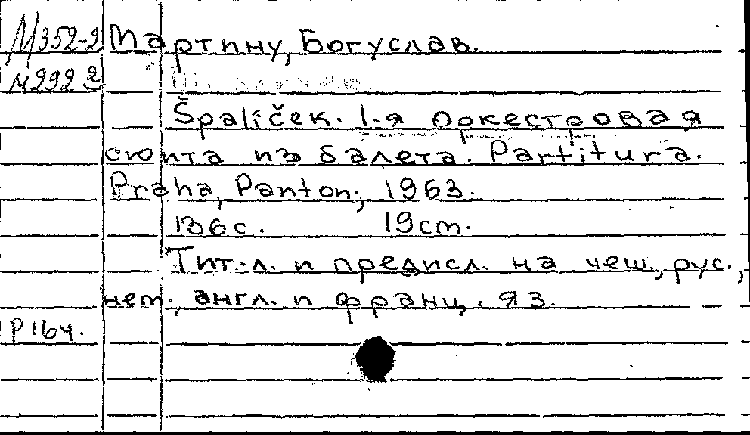 М352-2 Мартину, Богуслав.
М292 2
Špalíček. 1-я оркестровая
сюита из балета. Partitura.
Praha, Panton, 1963.
136 с. 19 cm.
Тит. л. и предисл. на чеш., рус.,
нем., англ. и франц. яз.
Р 164.